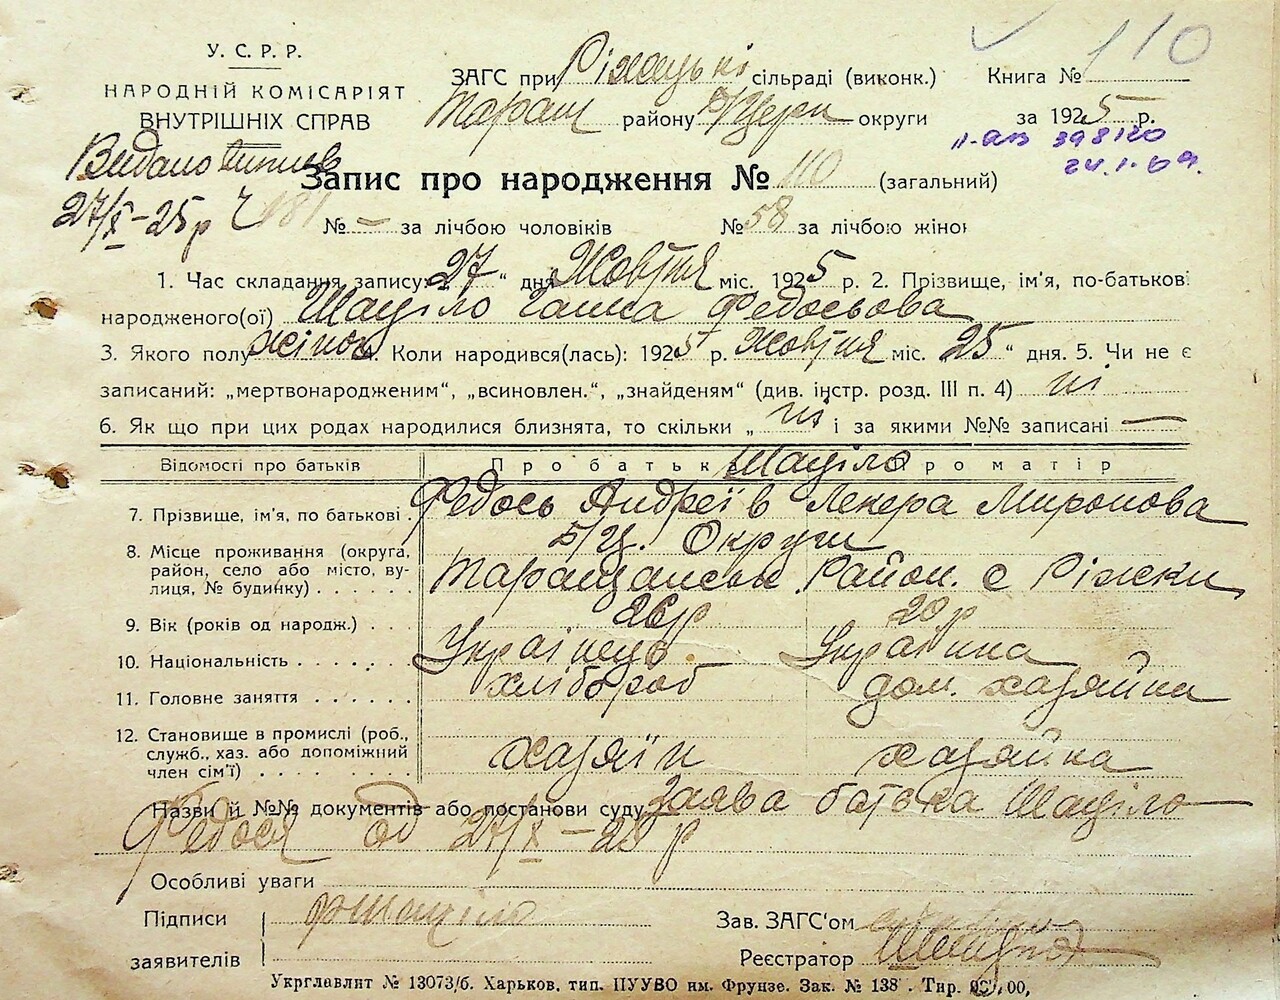 110
У. С. Р. Р.
НАРОДНІЙ КОМІСАРІЯТ
ВНУТРІШНІХ СПРАВ
ЗАГС при Ріжецькі сільраді (виконк.) Книга №
Таращ району Б/Церк округи за 1925 р.
II-АБ 398120
24.1.69.
Видано
27/X-25р
Запис про народження № 110 (загальний)
№ — за лічбою чоловіків № 58 за лічбою жінок
1. Час складання запису: „27“ дня Жовтня міс. 1925 р. 2. Прізвище, ім'я, по-батькові
народженого(ої) Шаціло Ганна Федосьова
3. Якого полу жіноч 4. Коли народився(лась): 1925 р. Жовтня міс. „25“ дня. 5. Чи не є
записаний: „мертвонародженим“, „всиновлен.“, „знайденям“ (див. інстр. розд. III п. 4) ні
6. Як що при цих родах народилися близнята, то скільки „ ні і за якими №№ записані —
Відомості про батьків Про батька Шаціло Про матір
7. Прізвище, ім'я, по батькові Федось Андреїв Лекера Миронова
8. Місце проживання (округа, Б/Ц. Округи
район, село або місто, ву- Таращанськ. Район. с Ріжки
лиця, № будинку)
9. Вік (років од народж.) 26р 20р
10. Національність Українець Українка
11. Головне заняття хлібороб дом. хазяйка
12. Становище в промислі (роб.,
служб., хаз. або допоміжний хазяїн хазяйка
член сім'ї)
Назви й №№ документів або постанови суду Заява батька Шаціло
Федося од 27/X-25 р
Особливі уваги
Підписи Ф Шаціло Зав. ЗАГС'ом
заявителів Реєстратор
Укрглавлит № 13073/б. Харьков. тип. ПУУВО им. Фрунзе. Зак. № 138 . Тир.